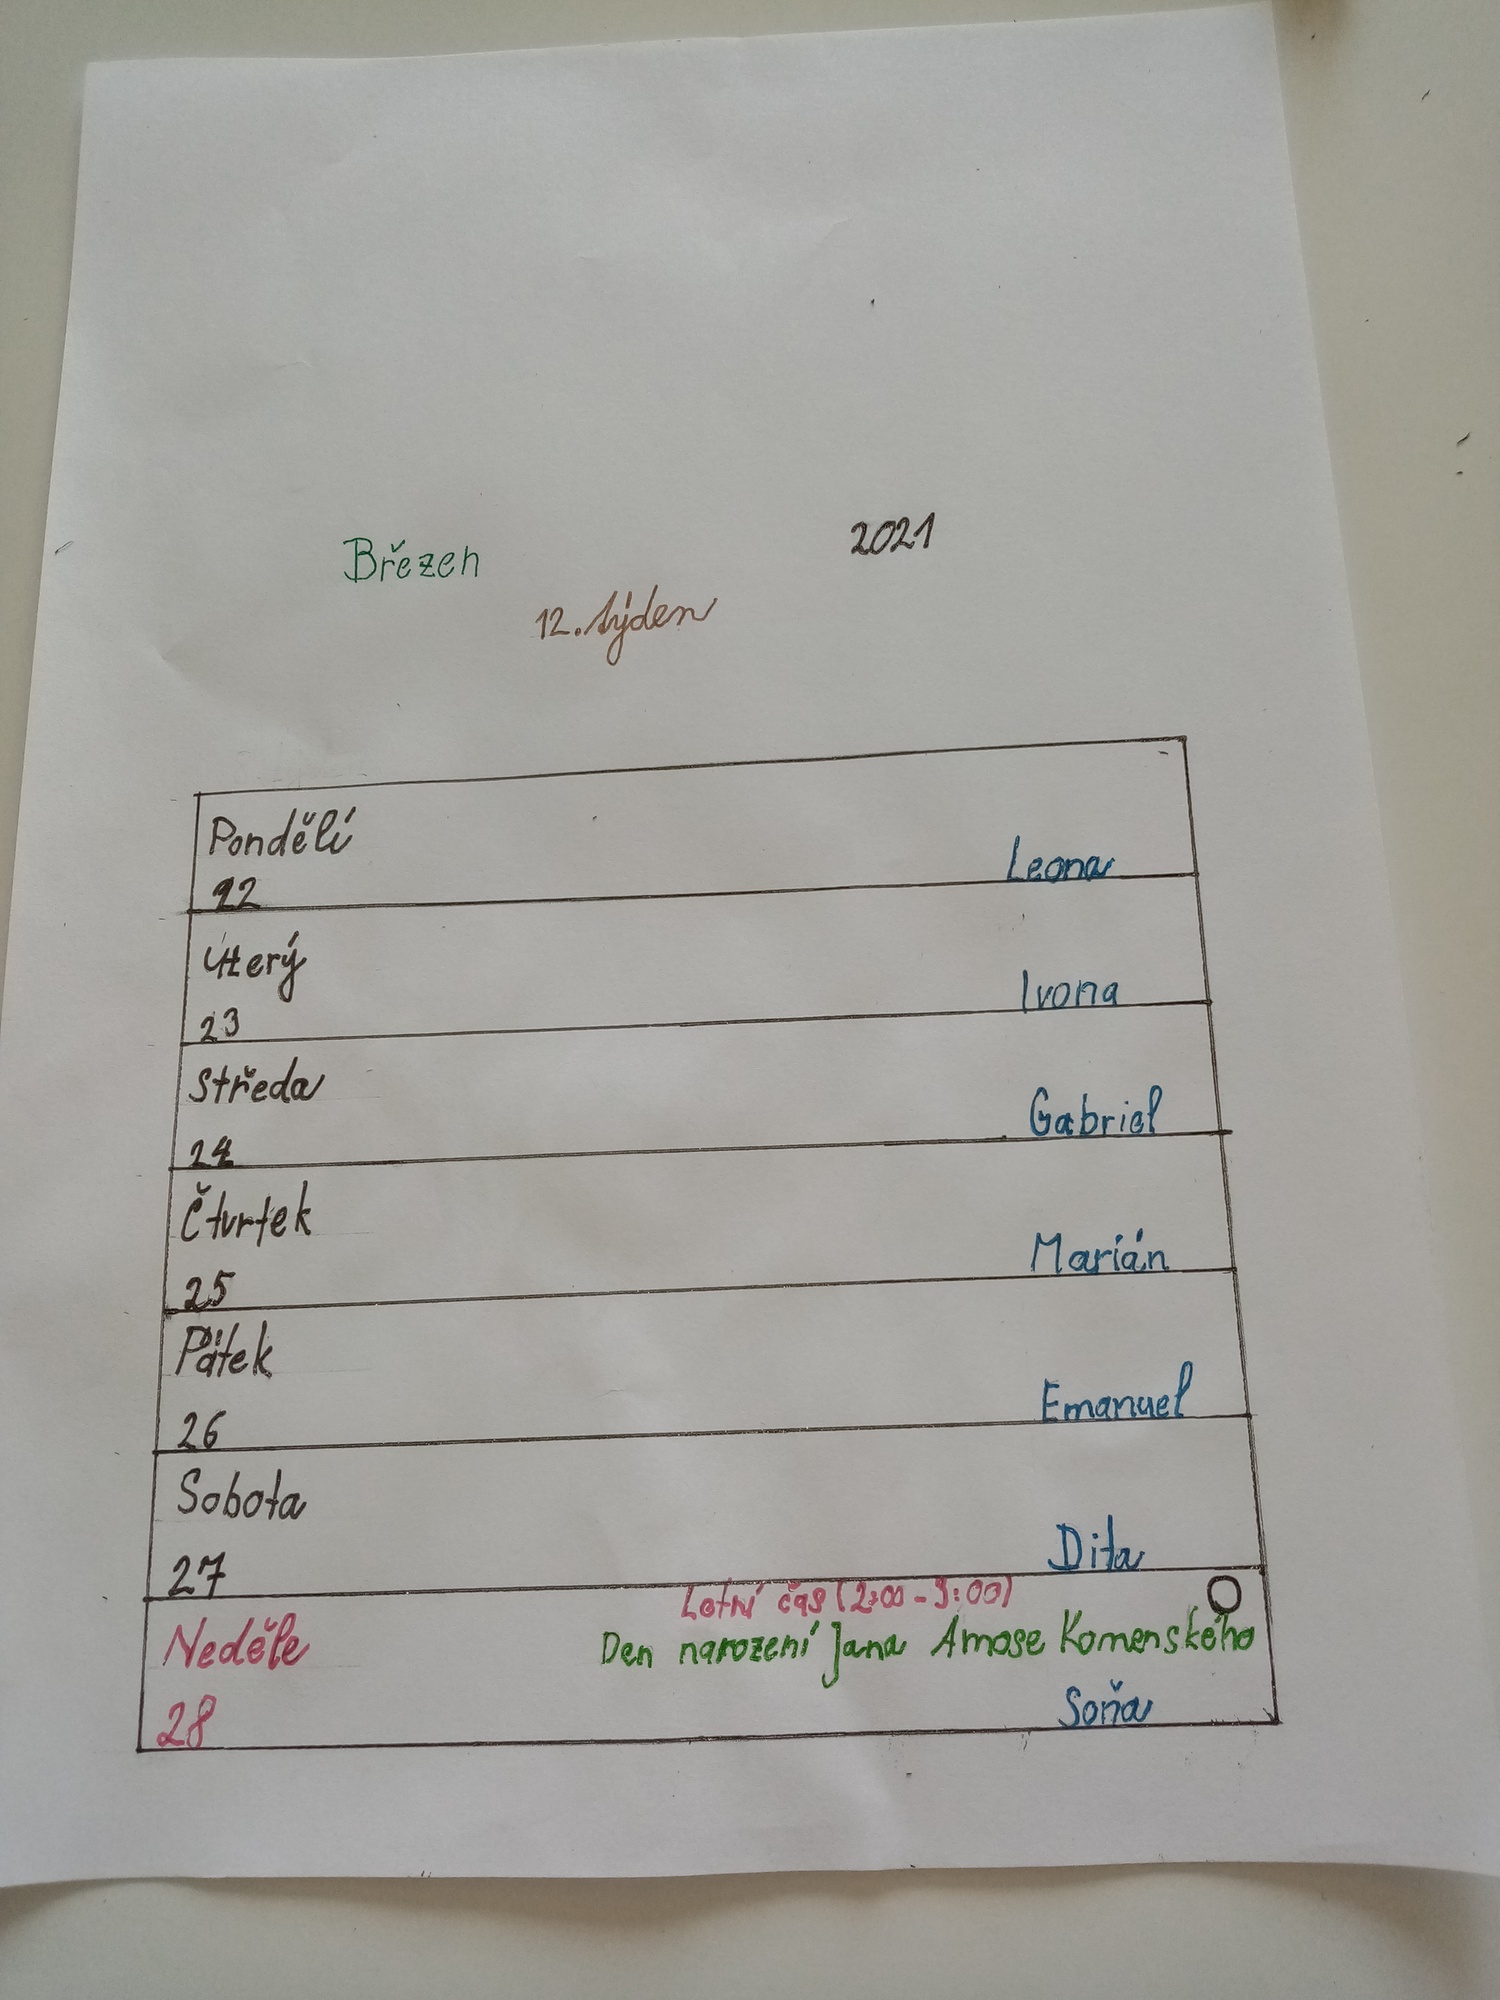 Březen 2021
12. týden
Pondělí
Leona
22
Úterý
Ivona
23
Středa
Gabriel
24
Čtvrtek
Marián
25
Pátek
Emanuel
26
Sobota
Dita
27
Letní čas (2:00 - 3:00)
Neděle
Den narození Jana Amose Komenského
Soňa
28